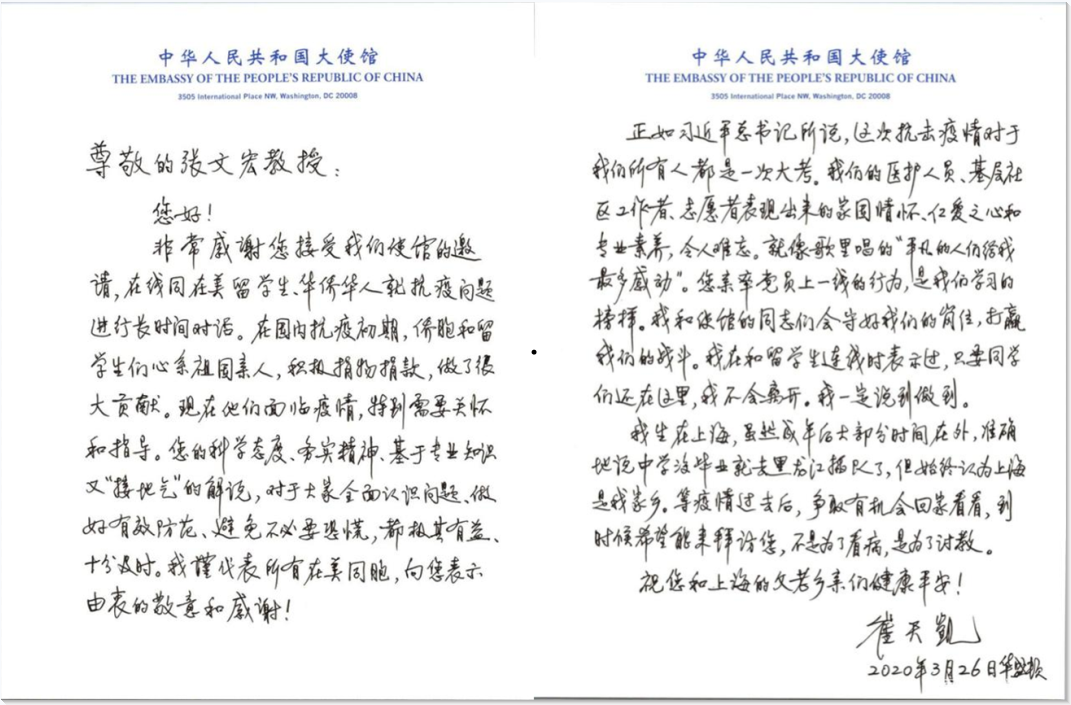 中华人民共和国大使馆
THE EMBASSY OF THE PEOPLE'S REPUBLIC OF CHINA
3505 International Place NW, Washington, DC 20008
尊敬的张文宏教授:
您好!
非常感谢您接受我们使馆的邀
请,在线同在美留学生、华侨华人就抗疫问题
进行长时间对话。在国内抗疫初期,侨胞和留
学生们心系祖国亲人,积极捐物捐款,做了很
大贡献。现在他们面临疫情,特别需要关怀
和指导。您的科学态度、务实精神、基于专业知识
又“接地气”的解说,对于大家全面认识问题、做
好有效防范、避免不必要恐慌,都极其有益、
十分及时。我谨代表所有在美同胞,向您表示
由衷的敬意和感谢!
中华人民共和国大使馆
THE EMBASSY OF THE PEOPLE'S REPUBLIC OF CHINA
3505 International Place NW, Washington, DC 20008
正如习近平总书记所说,这次抗击疫情对于
我们所有人都是一次大考。我们的医护人员、基层社
区工作者、志愿者表现出来的家国情怀、仁爱之心和
专业素养,令人难忘。就像歌里唱的“平凡的人们给我
最多感动”。您亲率党员上一线的行为,是我们学习的
榜样。我和使馆的同志们会守好我们的岗位,打赢
我们的战斗。我在和留学生连线时表示过,只要同学
们还在这里,我不会离开。我一定说到做到。
我生在上海,虽然成年后大部分时间在外,准确
地说中学没毕业就去黑龙江插队了,但始终认为上海
是我家乡。等疫情过去后,争取有机会回家看看,到
时候希望能来拜访您,不是为了看病,是为了讨教。
祝您和上海的父老乡亲们健康平安!
崔天凯
2020年3月26日华盛顿